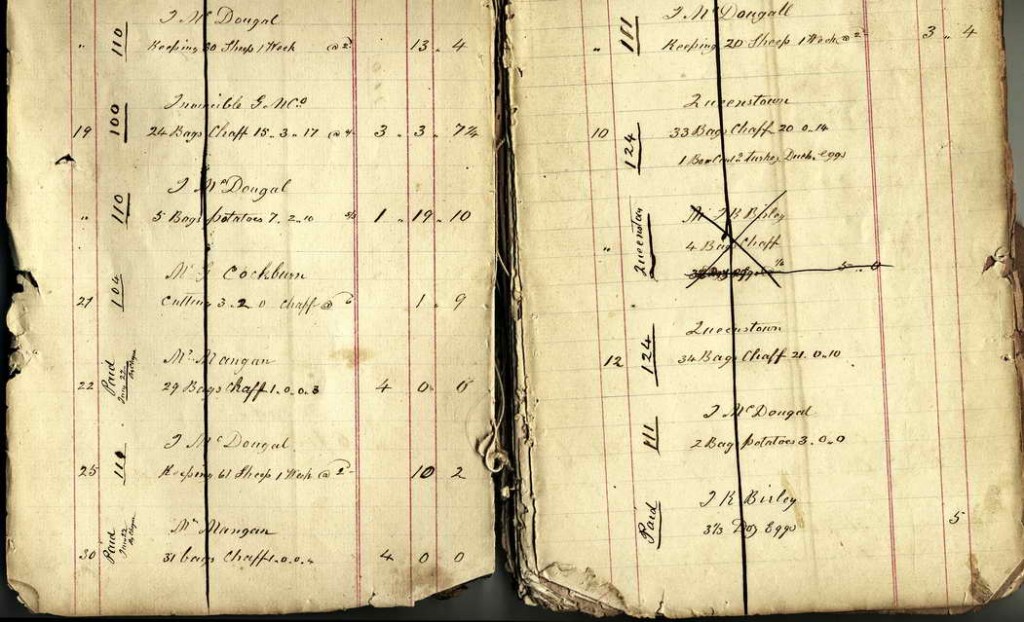 J Mc Dougal
" 110 Keeping 80 Sheep 1 Week @ 2 13 . 4
Invincible G. M. Co
19 100 24 Bags Chaff 15 . 3 . 17 @ 4/- 3 . 3 . 7 1/4
J Mc Dougal
" 110 5 Bags potatoes 7 . 2 . 10 5/- 1 . 19 . 10
Mr G Cockburn
21 104 Cutting 3 . 2 . 0 Chaff @ 1 . 9
Mr Mangan
22 Paid 29 Bags Chaff 1 . 0 . 0 . 3 4 0 0
J Mc Dougal
25 110 Keeping 61 Sheep 1 Week @ 2 10 2
Mr Mangan
30 Paid 31 bags Chaff 1 . 0 . 0 . 4 0 0
J Mc Dougall
" 111 Keeping 20 Sheep 1 Week @ 2 3 " 4
Queenstown
10 124 33 Bags Chaff 20 . 0 . 14
1 Turkey Duck Eggs
Mr J K Birley
" Queenstown 4 Bags Chaff
Eggs 5 . 0
Queenstown
12 124 34 Bags Chaff 21 . 0 . 10
J Mc Dougal
111 2 Bags potatoes 3 . 0 . 0
J K Birley
Paid 3 1/3 Doz Eggs 5